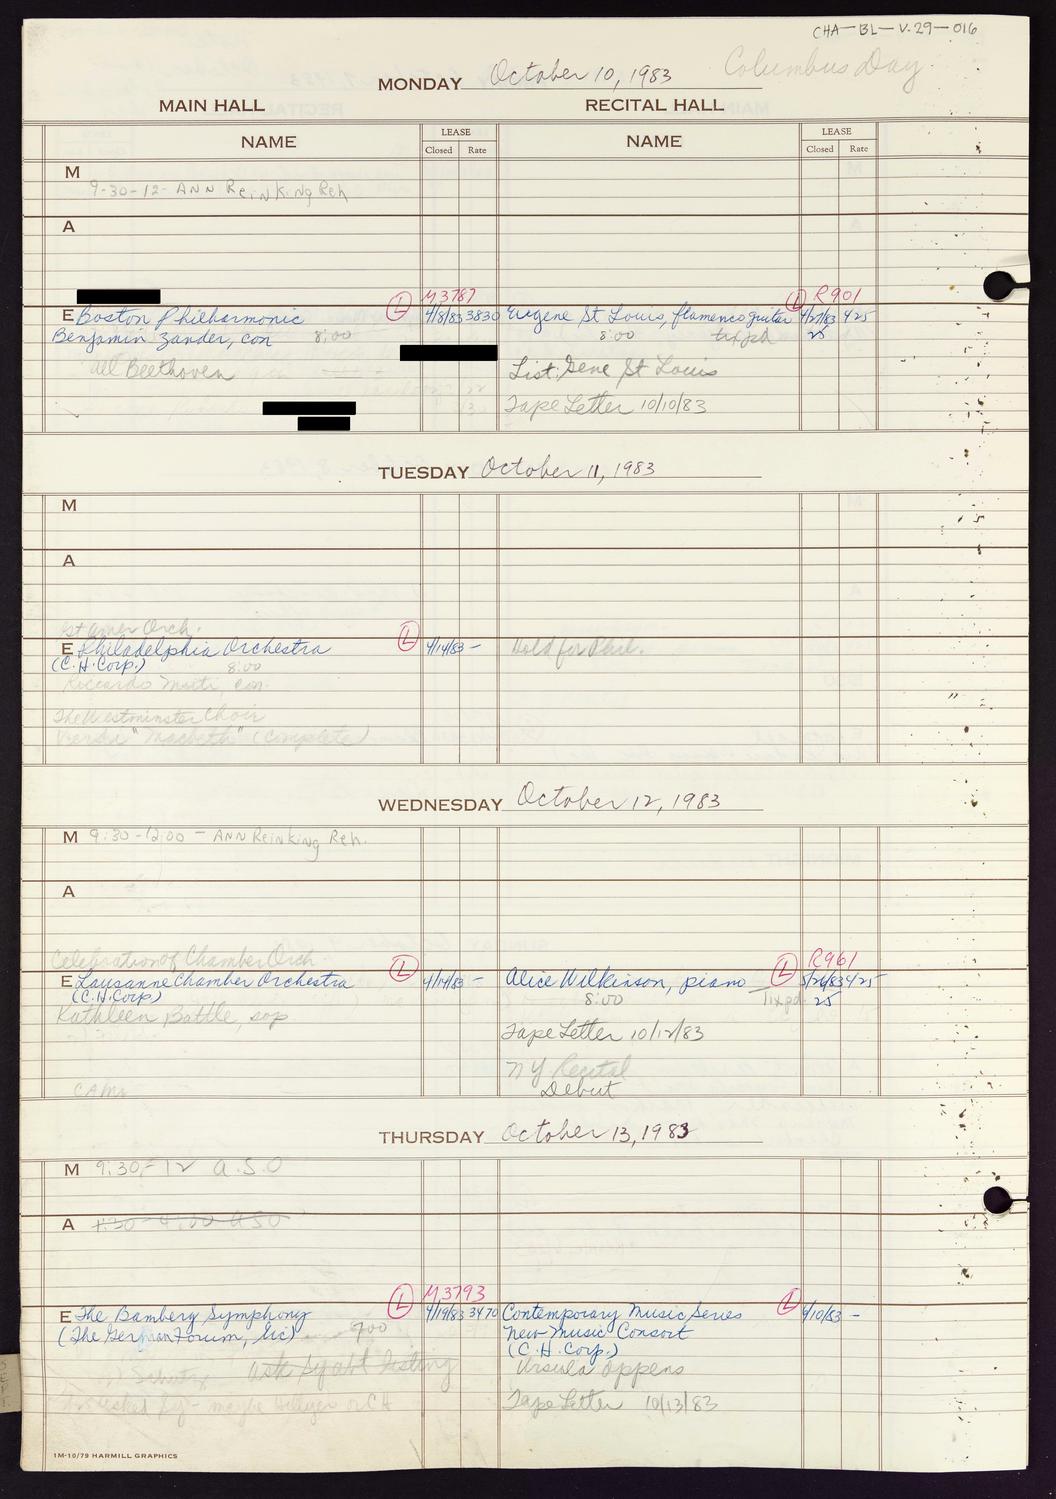 CHA-BL-V.29-016
MONDAY October 10, 1983 Columbus Day
MAIN HALL RECITAL HALL
NAME LEASE Closed Rate NAME LEASE Closed Rate
M
9-30-12- ANN Reinking Reh
A
M3787 R901
E Boston Philharmonic L 4/8/83 3830 Eugene St Louis, flamenco guitar L 4/27/83 425
Benjamin Zander, con 8:00 8:00 tix pd 25
All Beethoven List: Gene St Louis
Tape Letter 10/10/83
TUESDAY October 11, 1983
M
A
1st Amer Orch.
E Philadelphia Orchestra L 4/14/83 - Hold for Phil.
(C.H. Corp.) 8:00
Riccardo Muti, con.
The Westminster Choir
Verdi "Macbeth" (Complete)
WEDNESDAY October 12, 1983
M 9:30-12:00 - ANN Reinking Reh.
A
Celebration of Chamber Orch. R961
E Lausanne Chamber Orchestra L 4/14/83 - Alice Wilkinson, piano L 5/26/83 425
(C.H. Corp) 8:00 Tix pd. 25
Kathleen Battle, sop
Tape Letter 10/12/83
NY Recital
CAMI Debut
THURSDAY October 13, 1983
M 9:30-12 A.S.O
A 1:30-4:00 ASO
M3793
E The Bamberg Symphony L 4/19/83 3470 Contemporary Music Series L 9/10/83 -
(The German Forum, Inc) 8:00 New Music Consort
(C.H. Corp.)
ask Sy abt listing Ursula Oppens
maybe Hillyer or CH Tape Letter 10/13/83
1M-10/79 HARMILL GRAPHICS